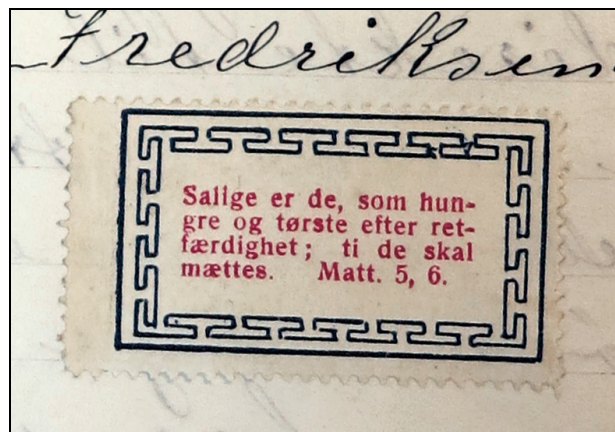 Fredriksen
Salige er de, som hun-
gre og tørste efter ret-
færdighet; ti de skal
mættes. Matt. 5, 6.